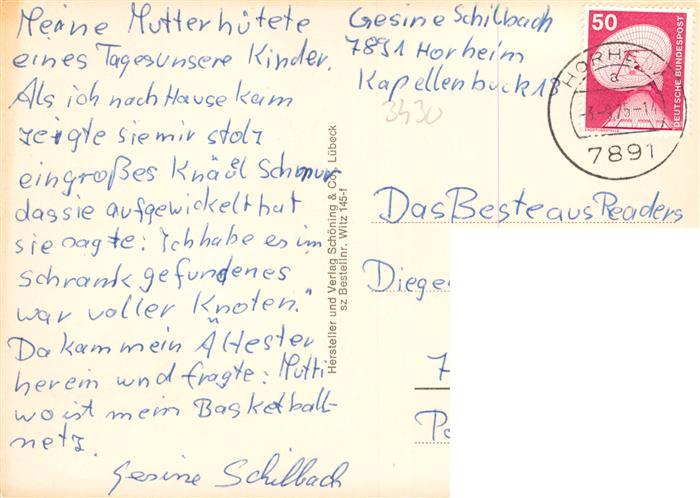 Meine Mutter hütete
eines Tages unsere Kinder.
Als ich nach Hause kam
zeigte sie mir stolz
ein großes Knäuel Schnur
das sie aufgewickelt hat
sie sagte: Ich habe es im
Schrank gefunden es
war voller Knoten."
Da kam mein Ältester
herein und fragte: Mutti
wo ist mein Basketball-
netz.
Gesine Schilbach
Hersteller und Verlag Schöning & Co, Lübeck
sz Bestellnr. Witz 145-f
Gesine Schilbach
7891 Horheim
Kapellenbuck 18
3430
50
DEUTSCHE BUNDESPOST
HORHEIM
a
7891
Das Beste aus Readers
Diege
7
Po